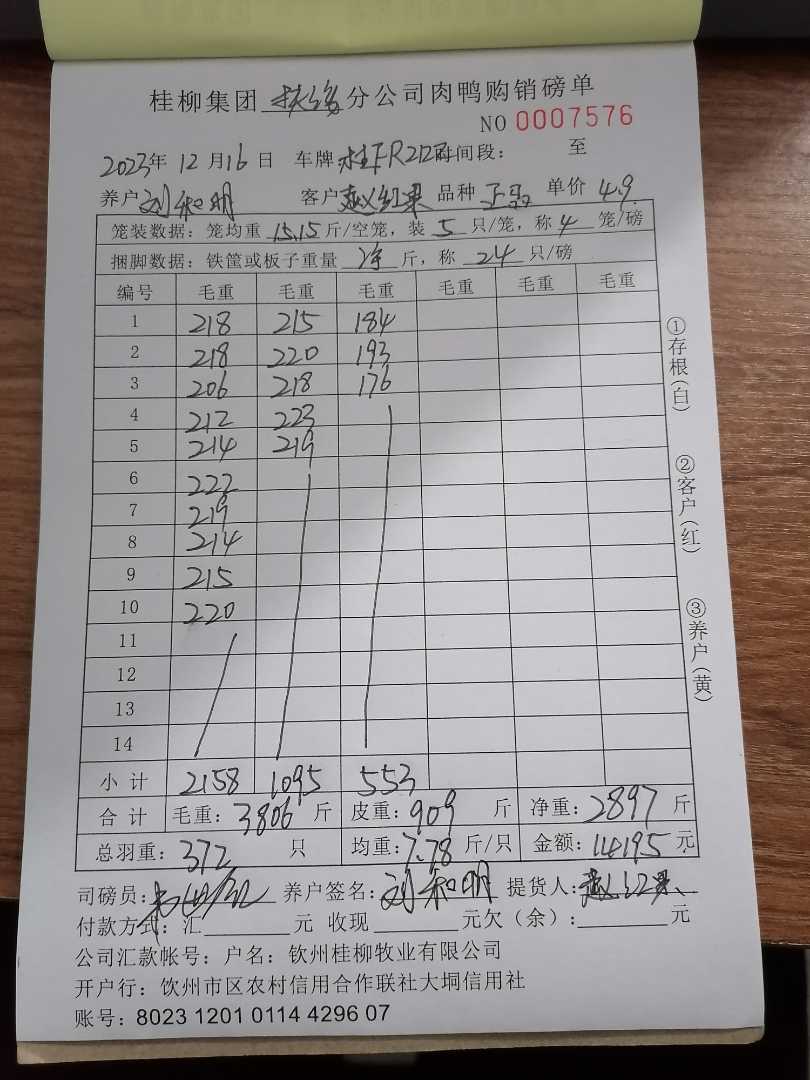 桂柳集团 扶绥 分公司肉鸭购销磅单
NO 0007576
2023年 12月16日 车牌 时间段： 至
养户 刘和明 客户 赵红果 品种 单价 4.9
笼装数据：笼均重 15.15 斤/空笼，装 5 只/笼，称 4 笼/磅
捆脚数据：铁筐或板子重量 净 斤，称 24 只/磅
编号 毛重 毛重 毛重 毛重 毛重 毛重
1 218 215 184
2 218 220 193
3 206 218 176
4 212 223
5 214 219
6 222
7 219
8 214
9 215
10 220
11
12
13
14
小计 2158 1095 553
合计 毛重：3806 斤 皮重：909 斤 净重：2897 斤
总羽重：372 只 均重：7.78 斤/只 金额：14195 元
司磅员： 养户签名：刘和明 提货人：赵红果
付款方式：汇 元 收现 元欠（余）： 元
公司汇款帐号：户名：钦州桂柳牧业有限公司
开户行：钦州市区农村信用合作联社大垌信用社
账号：8023 1201 0114 4296 07
①存根(白)
②客户(红)
③养户(黄)